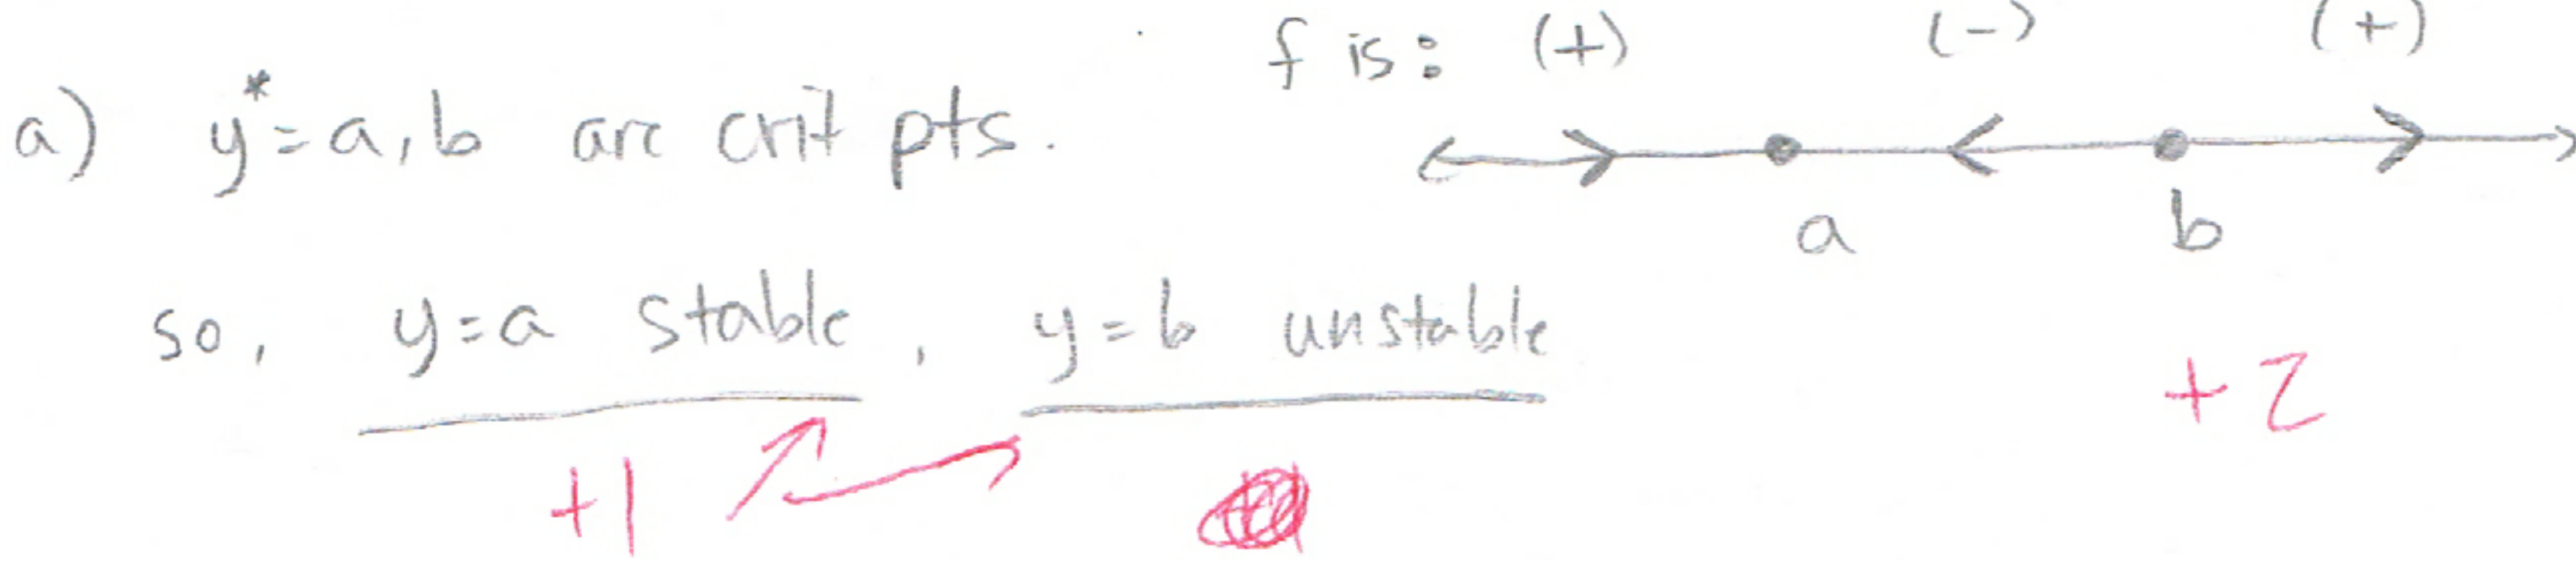 f is: (+) (-) (+)
a) y*=a,b are crit pts.
a b
so, y=a stable, y=b unstable
+2
+1